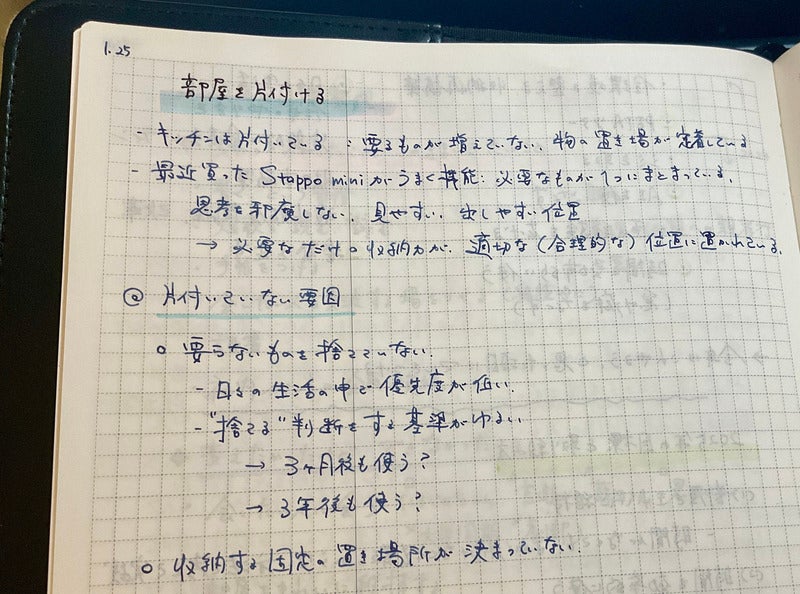 1.25
部屋を片付ける
- キッチンは片付いている：要るものが増えていない、物の置き場が定着している
- 最近買った Stappo mini がうまく機能：必要なものが1つにまとまっている、
思考を邪魔しない、見やすい、出しやすい位置
→ 必要なだけの収納力が、適切な（合理的な）位置に置かれている、
@ 片付いていない要因
○ 要らないものを捨てていない、
- 日々の生活の中で優先度が低い、
- "捨てる"判断をする基準がゆるい
→ 3ヶ月後も使う？
→ 3年後も使う？
○ 収納する固定の置き場所が決まっていない、